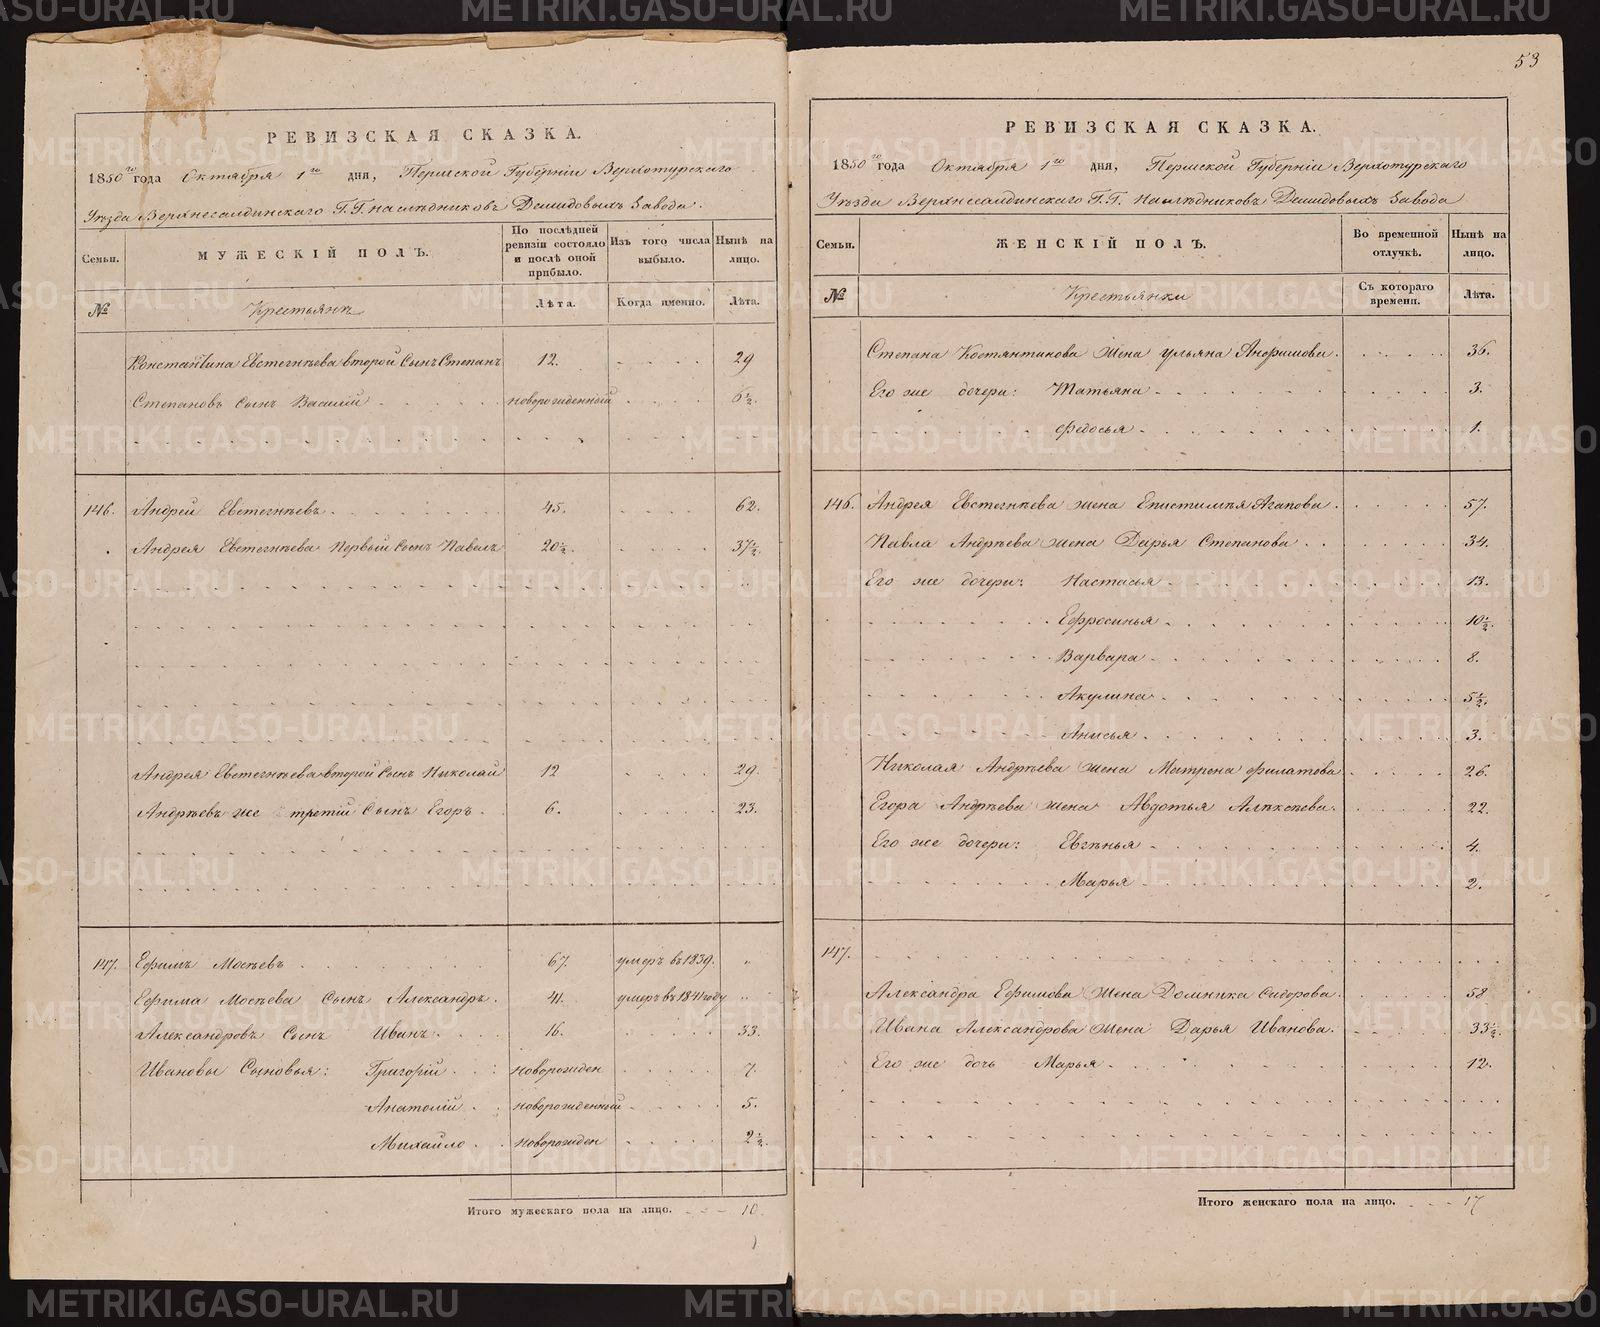 РЕВИЗСКАЯ СКАЗКА.
1850го года Октября 1го дня, Пермской Губерніи Верхотурскаго
Уѣзда Верхнесалдинскаго Г.Г. наслѣдниковъ Демидовыхъ Завода.
Семьи. МУЖЕСКІЙ ПОЛЪ. По послѣдней ревизіи состояло и послѣ оной прибыло. Изъ того числа выбыло. Нынѣ на лицо.
№ Крестьянъ Лѣта. Когда именно. Лѣта.
Константина Евстегнѣева второй Сынъ Степанъ 12. 29
Степановъ Сынъ Василій новорожденный 6½.
146. Андрей Евстегнѣевъ 45. 62.
Андрея Евстегнѣева Первый Сынъ Павелъ 20½. 37½.
Андрея Евстегнѣева второй Сынъ Николай 12 29.
Андрѣевъ же третій Сынъ Егоръ 6. 23.
147. Ефимъ Мосѣевъ 67. умеръ въ 1839.
Ефима Мосѣева Сынъ Александръ. 41. умеръ въ 1841 году
Александровъ Сынъ Иванъ 16. 33.
Ивановы Сыновья: Григорій новорожден 7.
Анатолій новорожденный 5.
Михайло новорожден 2½.
Итого мужескаго пола на лицо. 10.
53
РЕВИЗСКАЯ СКАЗКА.
1850го года Октября 1го дня, Пермской Губерніи Верхотурскаго
Уѣзда Верхнесалдинскаго Г.Г. Наслѣдниковъ Демидовыхъ Завода
Семьи. ЖЕНСКІЙ ПОЛЪ. Во временной отлучкѣ. Нынѣ на лицо.
№ Крестьянки Съ котораго времени. Лѣта.
Степана Костянтинова Жена Ульяна Анфимова. 36.
Его же дочери: Татьяна 3.
Федосья 1.
146. Андрея Евстегнѣева жена Епистимѣя Агапова. 57.
Павла Андрѣева жена Дарья Степанова 34.
Его же дочери: Настасья 13.
Ефросинья 10½.
Варвара 8.
Акулина 5½.
Анисья 3.
Николая Андрѣева жена Матрона Филатова 26.
Егора Андрѣева жена Авдотья Алѣксѣева. 22.
Его же дочери: Евгѣнья 4.
Марья 2.
147.
Александра Ефимова Жена Домника Сидорова. 58
Ивана Александрова Жена Дарья Иванова. 33½.
Его же дочь Марья 12.
Итого женскаго пола на лицо. 17
METRIKI.GASO-URAL.RU